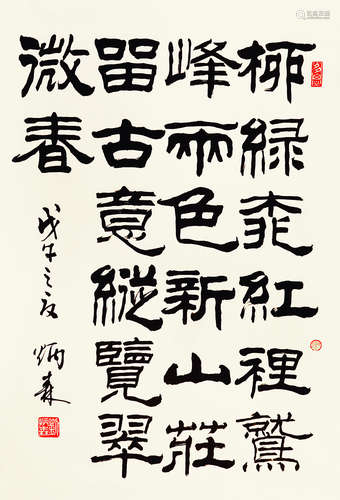 柳綠桃紅裡鷲
峰雨色新山莊
留古意縱覽翠
微春
戊午之 炳森